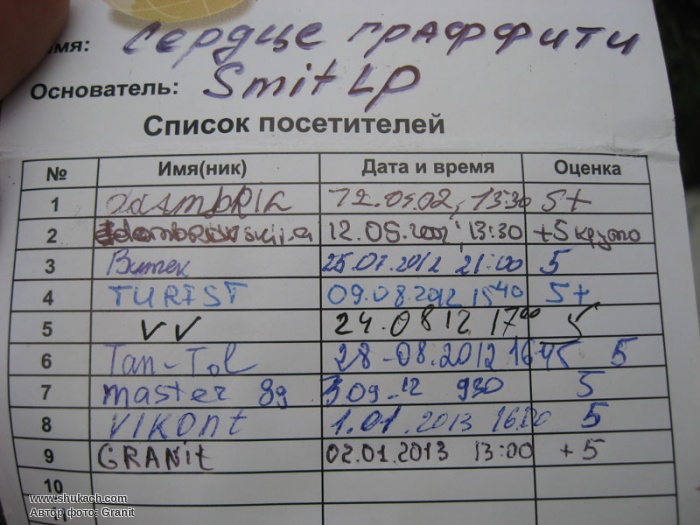 мя: Сердце граффити
Основатель: Smit LP
Список посетителей
№ Имя(ник) Дата и время Оценка
1 13:30 5+
2 13:30 +5 круто
3 Витек 25.07.2012 21:00 5
4 TURIST 09.08.2012 15 40 5+
5 VV 24.08 12 17 00 5
6 Tan-Tol 28-08.2012 16 45 5
7 master 89 09 12 930 5
8 VIKONt 1.01.2013 5
9 GRANit 02.01.2013 13:00 +5
10
11
www.shukach.com
Автор фото: Granit